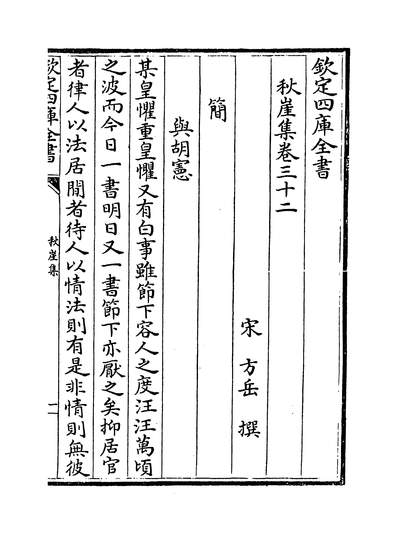 欽定四庫全書
秋崖集卷三十二
宋 方岳 撰
簡
與胡憲
某皇懼重皇懼又有白事雖節下容人之度汪汪萬頃
之波而今日一書明日又一書節下亦厭之矣抑居官
者律人以法居閒者待人以情法則有是非情則無彼
欽定四庫全書
秋崖集
一